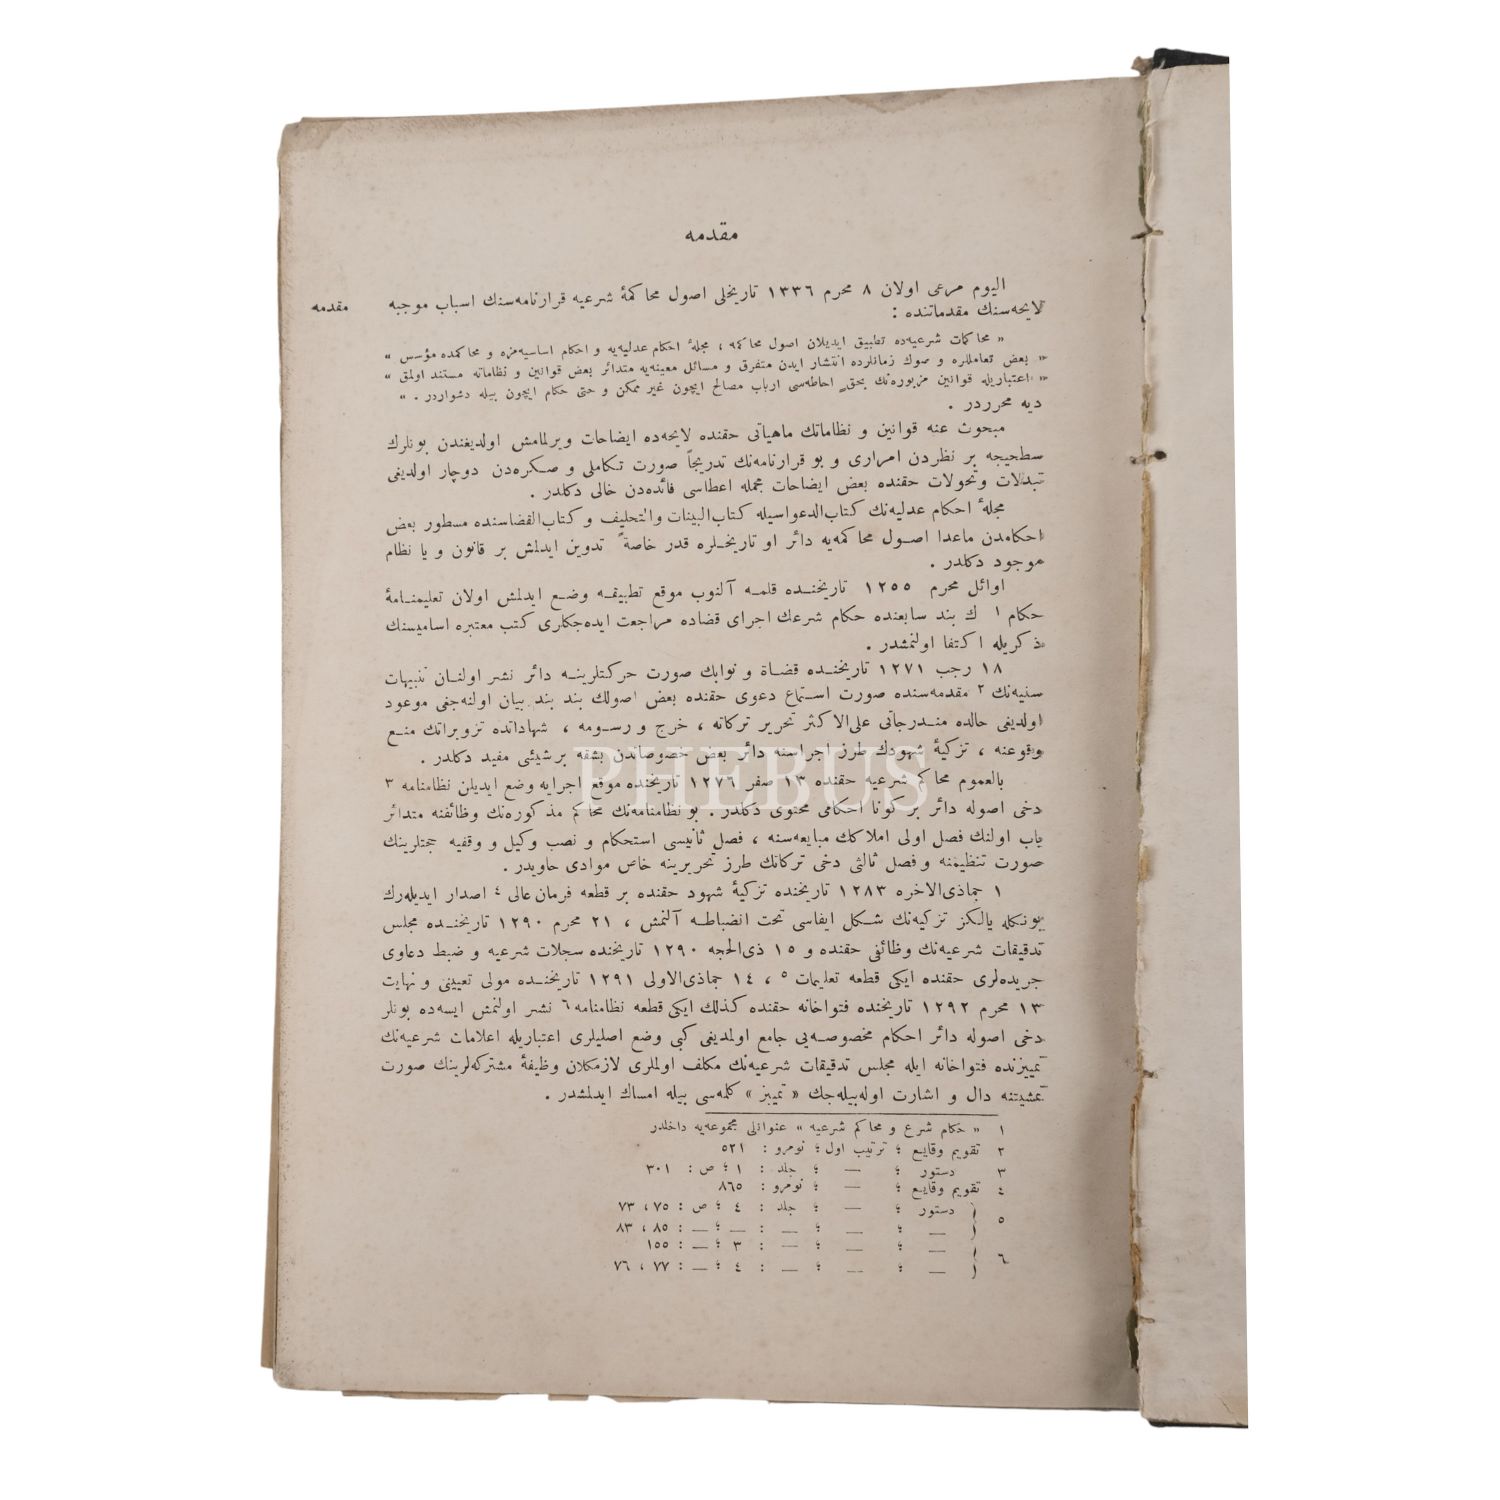 مقدمه
مقدمه
اليوم مرعى اولان ٨ محرم ١٣٣٦ تاريخلى اصول محاكمهٔ شرعيه قرارنامه‌سنك اسباب موجبه
لايحه‌سنك مقدماتنده :
« محاكمات شرعيه‌ده تطبيق ايديلان اصول محاكمه ، مجلهٔ احكام عدليه‌يه و احكام اساسيه‌مزه و محاكمده مؤسس »
« بعض تعامللره و صوك زمانلرده انتشار ايدن متفرق و مسائل معينه‌يه متدائر بعض قوانين و نظاماته مستند اولمق »
« اعتباريله قوانين مزبوره‌نك بحقٍ احاطه‌سى ارباب مصالح ايچون غير ممكن و حتى حكام ايچون بيله دشواردر . »
ديه محرردر .
مبحوث عنه قوانين و نظاماتك ماهياتى حقنده لايحه‌ده ايضاحات ويرلمامش اولديغندن بونلرك
سطحيجه بر نظردن امرارى و بو قرارنامه‌نك تدريجاً صورت تكاملى و صكره‌دن دوچار اولديغى
تبدلات وتحولات حقنده بعض ايضاحات مجمله اعطاسى فائده‌دن خالى دكلدر .
مجلهٔ احكام عدليه‌نك كتاب‌الدعواسيله كتاب‌البينات والتحليف و كتاب‌القضاسنده مسطور بعض
احكامدن ماعدا اصول محاكمه‌يه دائر او تاريخلره قدر خاصةً تدوين ايدلمش بر قانون و يا نظام
موجود دكلدر .
اوائل محرم ١٢٥٥ تاريخنده قلمه آلنوب موقع تطبيقه وضع ايدلمش اولان تعليمنامهٔ
حكام ١ ك بند سابعنده حكام شرعك اجراى قضاده مراجعت ايده‌جكلرى كتب معتبره اساميسنك
ذكريله اكتفا اولنمشدر .
١٨ رجب ١٢٧١ تاريخنده قضاة و نوابك صورت حركتلرينه دائر نشر اولنان تنبيهات
سنيه‌نك ٢ مقدمه‌سنده صورت استماع دعوى حقنده بعض اصولك بند بند بيان اولنه‌جغى موعود
اولديغى حالده مندرجاتى على‌الاكثر تحرير تركاته ، خرج و رسومه ، شهاداتده تزويراتك منع
وقوعنه ، تزكيهٔ شهودك طرز اجراسنه دائر بعض خصوصاتدن بشقه برشيئى مفيد دكلدر .
بالعموم محاكم شرعيه حقنده ١٣ صفر ١٢٧٦ تاريخنده موقع اجرايه وضع ايديلن نظامنامه ٣
دخى اصوله دائر بر كونا احكامى محتوى دكلدر . بو نظامنامه‌نك محاكم مذكوره‌نك وظائفنه متدائر
باب اولنك فصل اولى املاكك مبايعه‌سنه ، فصل ثانيسى استحكام و نصب وكيل و وقفيه حجتلرينك
صورت تنظيمنه و فصل ثالثى دخى تركاتك طرز تحريرينه خاص موادى حاويدر .
١ جماذى‌الاخره ١٢٨٣ تاريخنده تزكيهٔ شهود حقنده بر قطعه فرمان عالى ٤ اصدار ايديله‌رك
بونكله يالكز تزكيه‌نك شكل ايفاسى تحت انضباطه آلنمش ، ٢١ محرم ١٢٩٠ تاريخنده مجلس
تدقيقات شرعيه‌نك وظائفى حقنده و ١٥ ذى‌الحجه ١٢٩٠ تاريخنده سجلات شرعيه و ضبط دعاوى
جريده‌لرى حقنده ايكى قطعه تعليمات ٥ ، ١٤ جماذى‌الاولى ١٢٩١ تاريخنده مولى تعيينى و نهايت
١٣ محرم ١٢٩٢ تاريخنده فتواخانه حقنده كذلك ايكى قطعه نظامنامه ٦ نشر اولنمش ايسه‌ده بونلر
دخى اصوله دائر احكام مخصوصه‌يى جامع اولمديغى كبى وضع اصليلرى اعتباريله اعلامات شرعيه‌نك
تمييزنده فتواخانه ايله مجلس تدقيقات شرعيه‌نك مكلف اولملرى لازمكلان وظيفهٔ مشتركه‌لرينك صورت
تمشيتنه دال و اشارت اوله‌بيله‌جك « تمييز » كلمه‌سى بيله امساك ايدلمشدر .
١ « حكام شرع و محاكم شرعيه » عنوانلى مجموعه‌يه داخلدر
٢ تقويم وقايع ؛ ترتيب اول ؛ نومرو : ٥٢١
٣ دستور ؛ — ؛ جلد : ١ ؛ ص : ٣٠١
٤ تقويم وقايع ؛ — ؛ نومرو : ٨٦٥
٥ { دستور ؛ — ؛ جلد : ٤ ؛ ص : ٧٥ ، ٧٣
— ؛ — ؛ — : — ؛ — : ٨٥ ، ٨٣
٦ { — ؛ — ؛ — : ٣ ؛ — : ١٥٥
— ؛ — ؛ — : ٤ ؛ — : ٧٧ ، ٧٦
PHEBUS